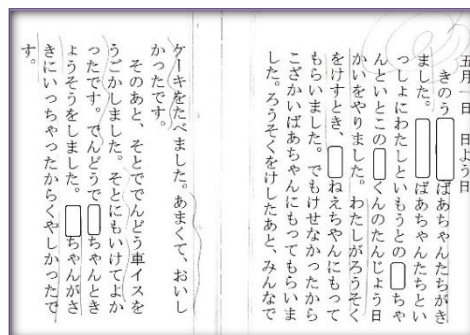 五月一日 日よう日
きのう ばあちゃんたちがき
ました。 ばあちゃんたちとい
っしょにわたしといもうとの ちゃ
んといとこの くんのたんじょう日
かいをやりました。わたしがろうそく
をけすとき、 ねえちやんにもって
もらいました。でもけせなかったから
こざかいばあちゃんにもってもらいま
した。ろうそくをけしたあと、みんなで
ケーキをたべました。あまくて、おいし
かったです。
そのあと、そとででんどう車イスを
うごかしました。そとにもいけてよか
ったです。でんどうで ちゃんとき
ょうそうをしました。 ちゃんがさ
きにいっちゃったからくやしかったで
す。